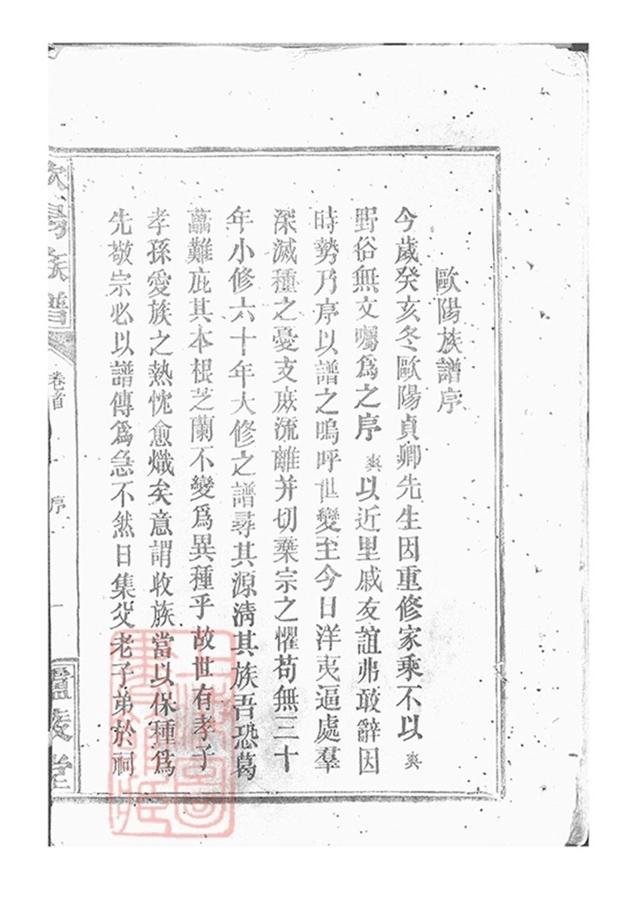 歐陽族譜序
今歲癸亥冬歐陽貞卿先生因重修家乘不以爽
野俗無文囑爲之序爽以近里戚友誼弗敢辭因
時勢乃序以譜之嗚呼世變至今日洋夷逼處羣
深滅種之憂支庶流離并切棄宗之懼苟無三十
年小修六十年大修之譜尋其源清其族吾恐葛
藟難庇其本根芝蘭不變爲異種乎故世有孝子
孝孫愛族之熱忱愈熾矣意謂收族當以保種爲
先敬宗必以譜傳爲急不然日集父老子弟於祠
歐陽族譜
卷首
序
一
廬陵堂